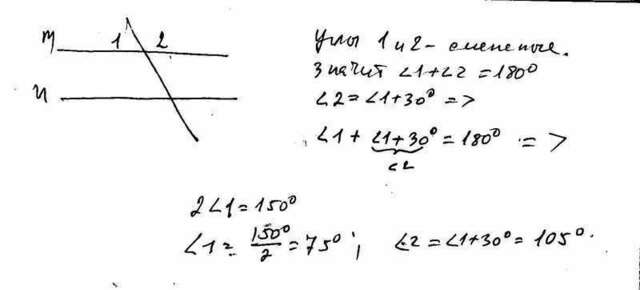 m 1 2
n
Углы 1 и 2 - смежные.
Значит ∠1+∠2=180°
∠2=∠1+30° =>
∠1+∠1+30°=180° =>
∠2
2∠1=150°
∠1=150°/2=75°; ∠2=∠1+30°=105°.